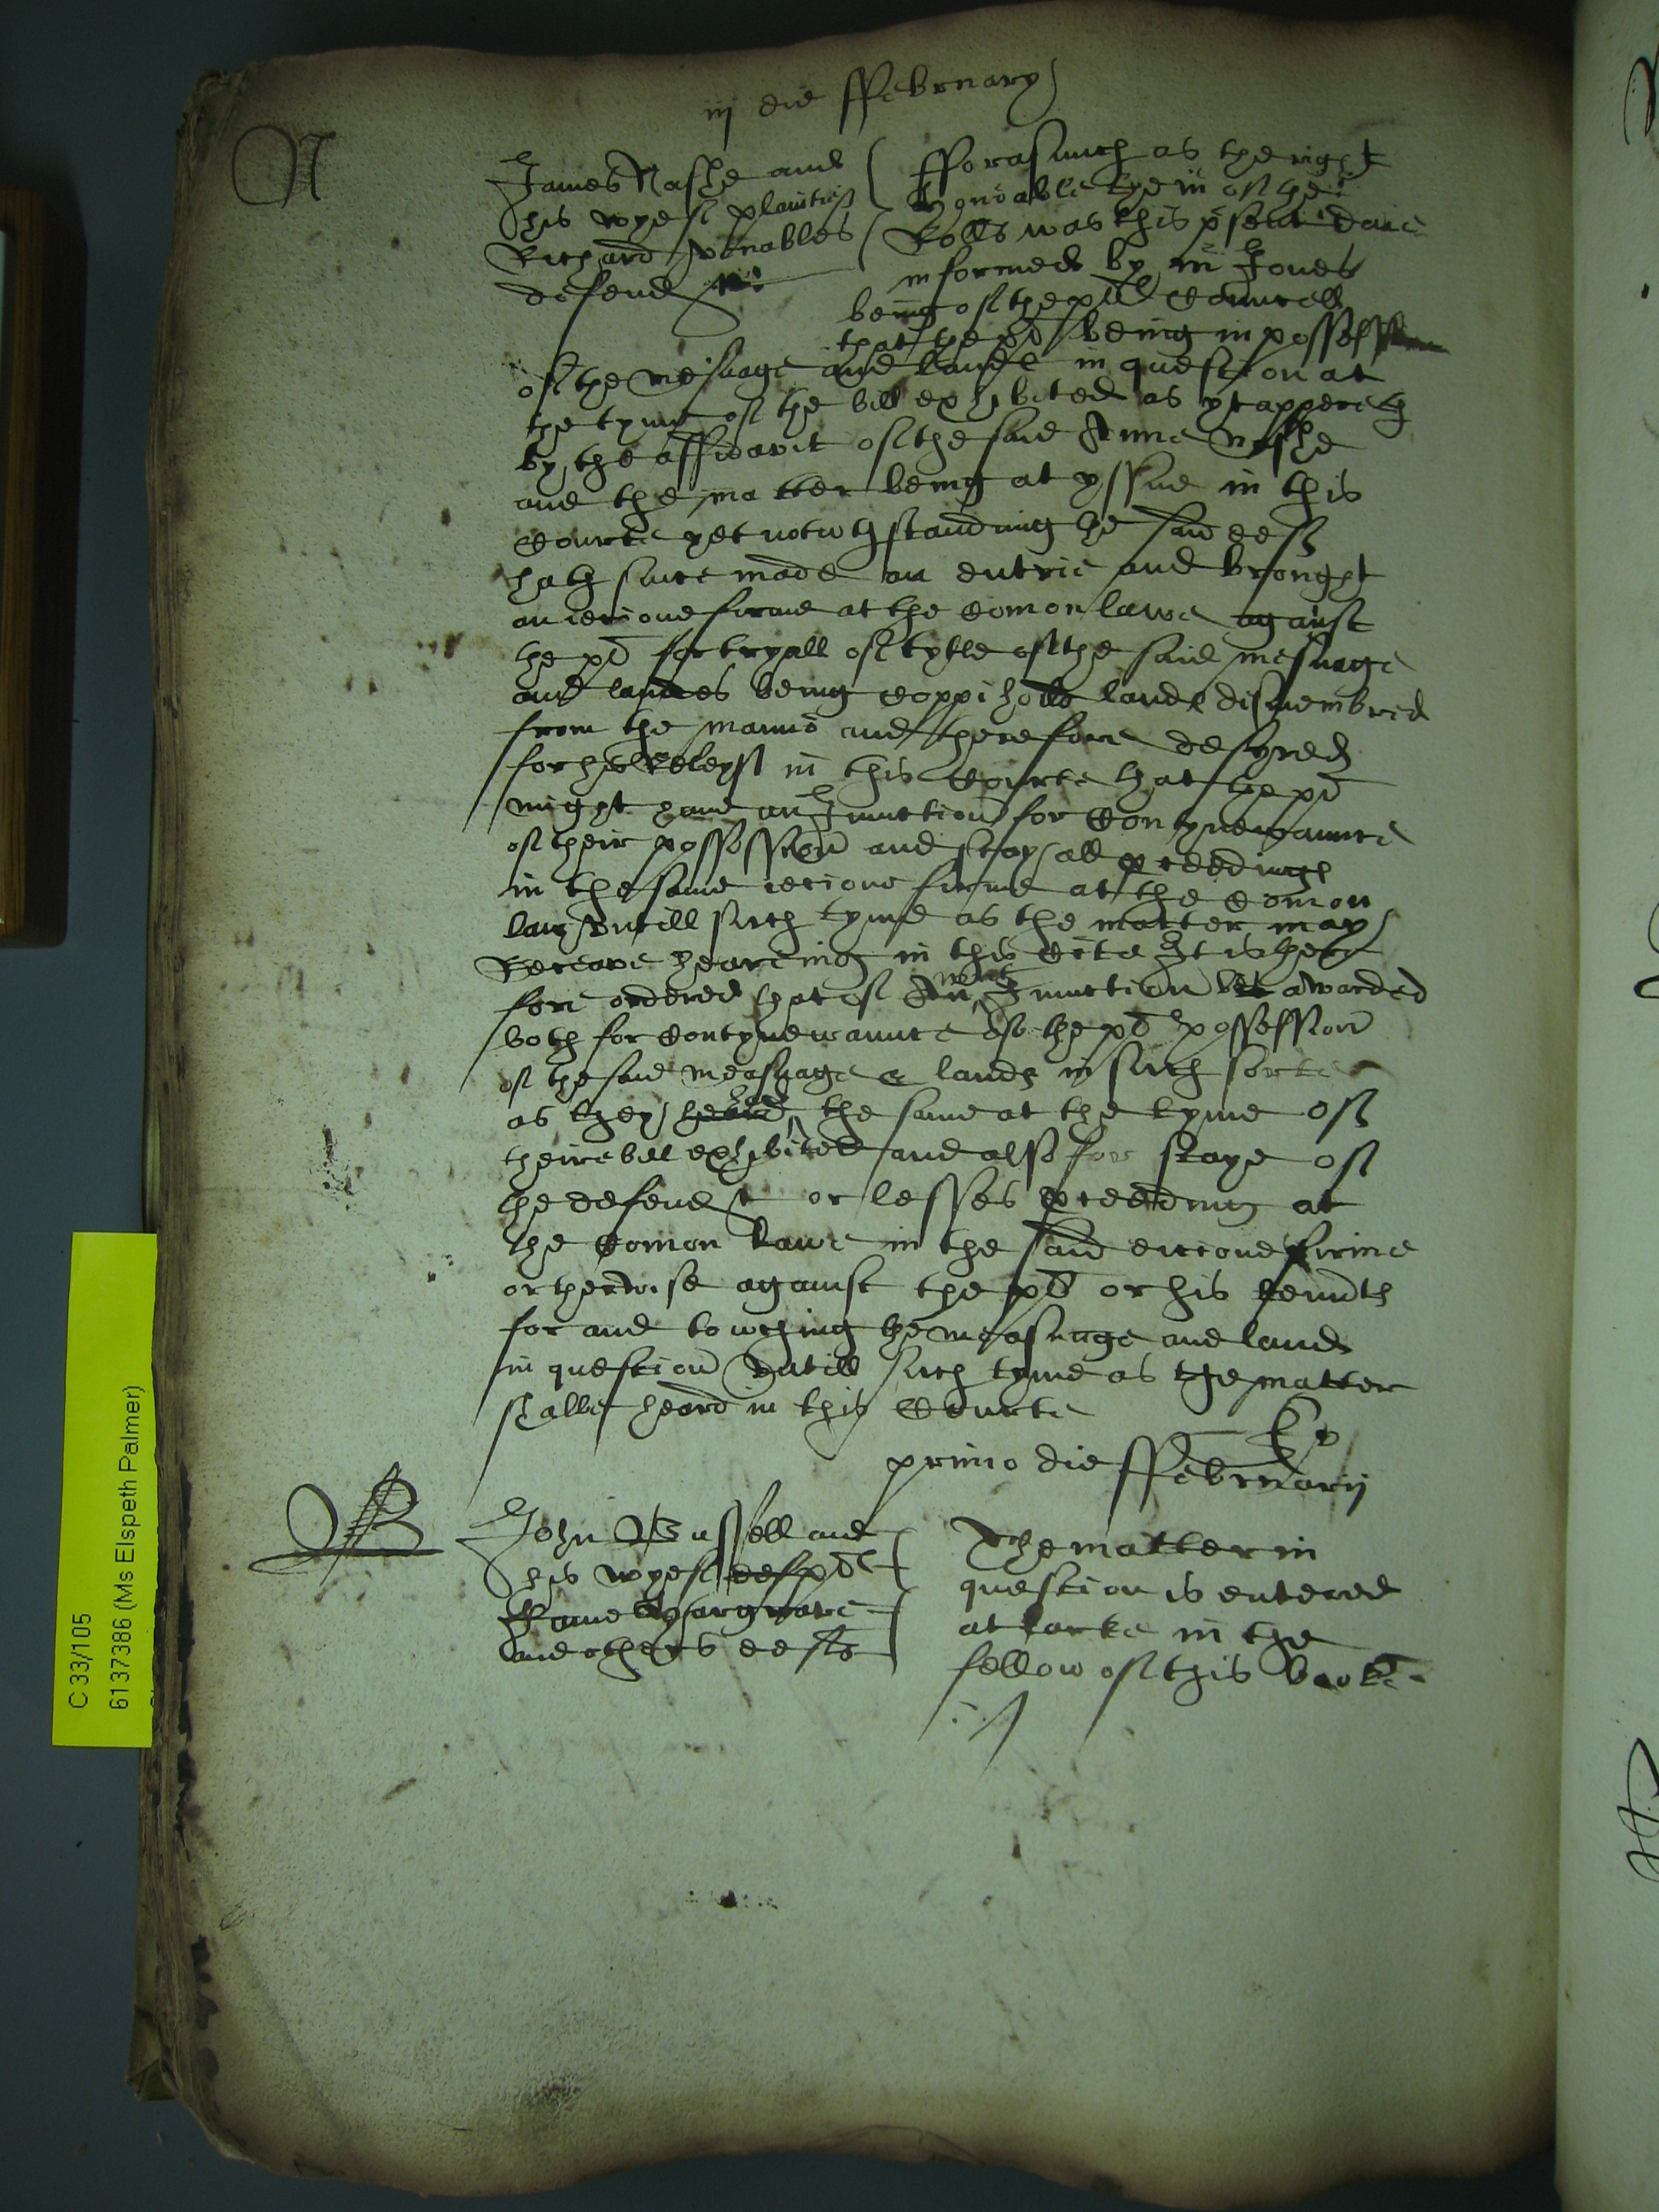 iij die ffebruary
N
James Nashe and
his wyef plainties
Richard Venables
defend
fforasmuch as the right
honorable the mr of the
Rolls was this psent daie
informed by mr Jones
being of the pltes Councell
that the plt being in possession
of the mesuage and lande in question at
the tyme of the bill exhibited as yt appereth
by the affidavit of the said Anne Nashe
and the matter being at yssue in this
Courte yet notwthstanding the said deft
hath since made an entrie and brought
an iecione firme at the comon lawe against
the plt for tryall of tytle of the said mesuage
and landes being Coppiholde lande dismembred
from the mannor and therefore desyred
for the Releyf in this Courte that the plt
might have an Iniunction for Contynewaunce
of their possession and stay all pceedinge
in the same iecione firme at the Comon
law untill such tyme as the matter may
Receave heareing in this Corte It is there
fore ordered that an Iniunction be awarded
both for Contynewaunce of the plt possession
of the said measuage & lands in such sorte
as they had the same at the tyme of
theire bill exhibited and also for staye of
the defendt or lesses pceeding at
the Comon lawe in the said eiecione firme
or therwise against the plt or his tennts
for and towching the measuage and lands
in question untill such tyme as the matter
shalbe heard in this Courte
primo die ffebruarij
John Russell and
his wyef plt
Jane Hargrave
and others defts
The matter in
question is entered
at large in the
fellow of this booke
C 33/105
6137386 (Ms Elspeth Palmer)